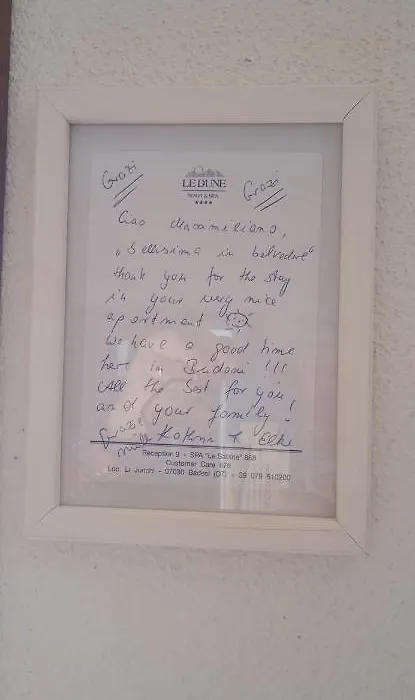 Grazi
Grazi
LE DUNE
RESORT & SPA
Ciao Massimiliano,
„Bellissima in belvedere“
thank you for the stay
in your very nice
apartment
We have a good time
here in Badesi !!!
All the best for you
and your family!
Grazie
mille Katrin + Elke
Reception 9 - SPA "Le Sabine" 868
Customer Care 876
Loc. Li Junchi - 07030 Badesi (OT) - 39 079 610200